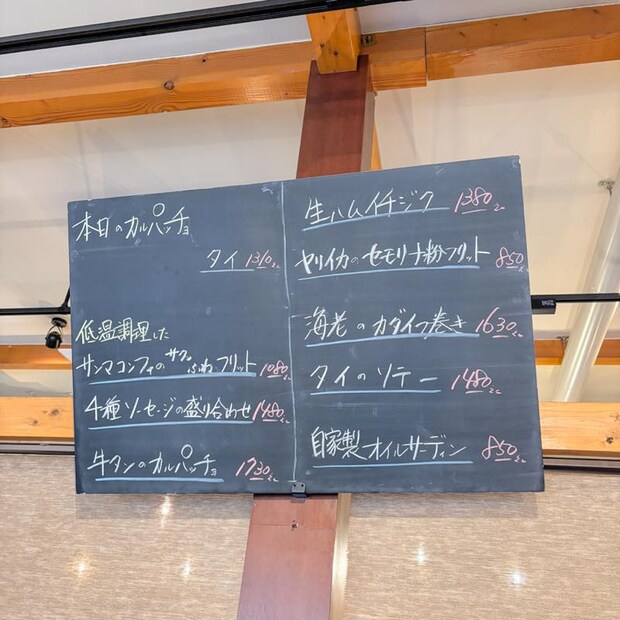 本日のカルパッチョ
タイ 1310
低温調理した
サンマコンフィのサクふわフリット 1080
4種ソーセージの盛り合わせ 1480
牛タンのカルパッチョ 1730
生ハムイチジク 1380
ヤリイカのセモリナ粉フリット 850
海老のカダイフ巻き 1630
タイのソテー 1480
自家製オイルサーディン 850